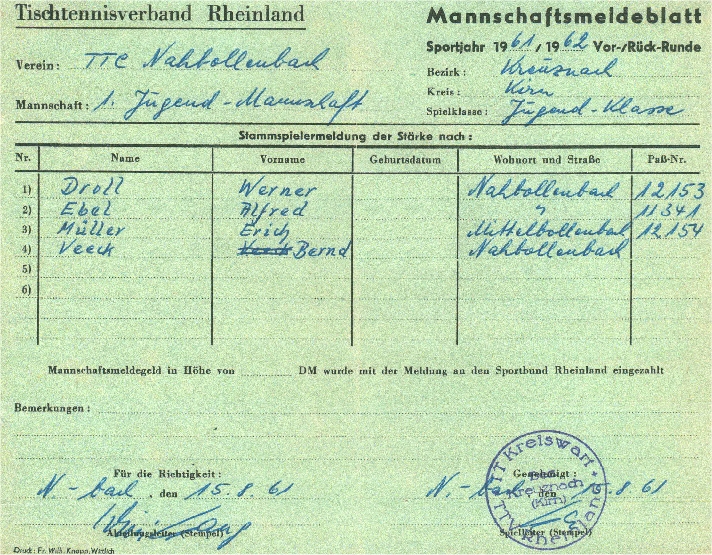 Tischtennisverband Rheinland
Mannschaftsmeldeblatt
Sportjahr 1961 / 1962 Vor-/Rück-Runde
Verein: TTC Nahbollenbach
Bezirk: Kreuznach
Kreis: Kirn
Mannschaft: 1. Jugend-Mannschaft
Spielklasse: Jugend-Klasse
Stammspielermeldung der Stärke nach:
Nr. Name Vorname Geburtsdatum Wohnort und Straße Paß-Nr.
1) Droll Werner Nahbollenbach 12153
2) Ebel Alfred " 11341
3) Müller Erich Mittelbollenbach 12154
4) Veeck Veeck Bernd Nahbollenbach
5)
6)
Mannschaftsmeldegeld in Höhe von DM wurde mit der Meldung an den Sportbund Rheinland eingezahlt
Bemerkungen:
Für die Richtigkeit: Genehmigt:
N.-bach, den 15.8.61 N.-bach den 15.8.61
Abteilungsleiter (Stempel) Spielleiter (Stempel)
TT Kreiswart
Kreuznach
(Kirn)
TTV Rheinland
Druck: Fr. Wilh. Knopp, Wittlich